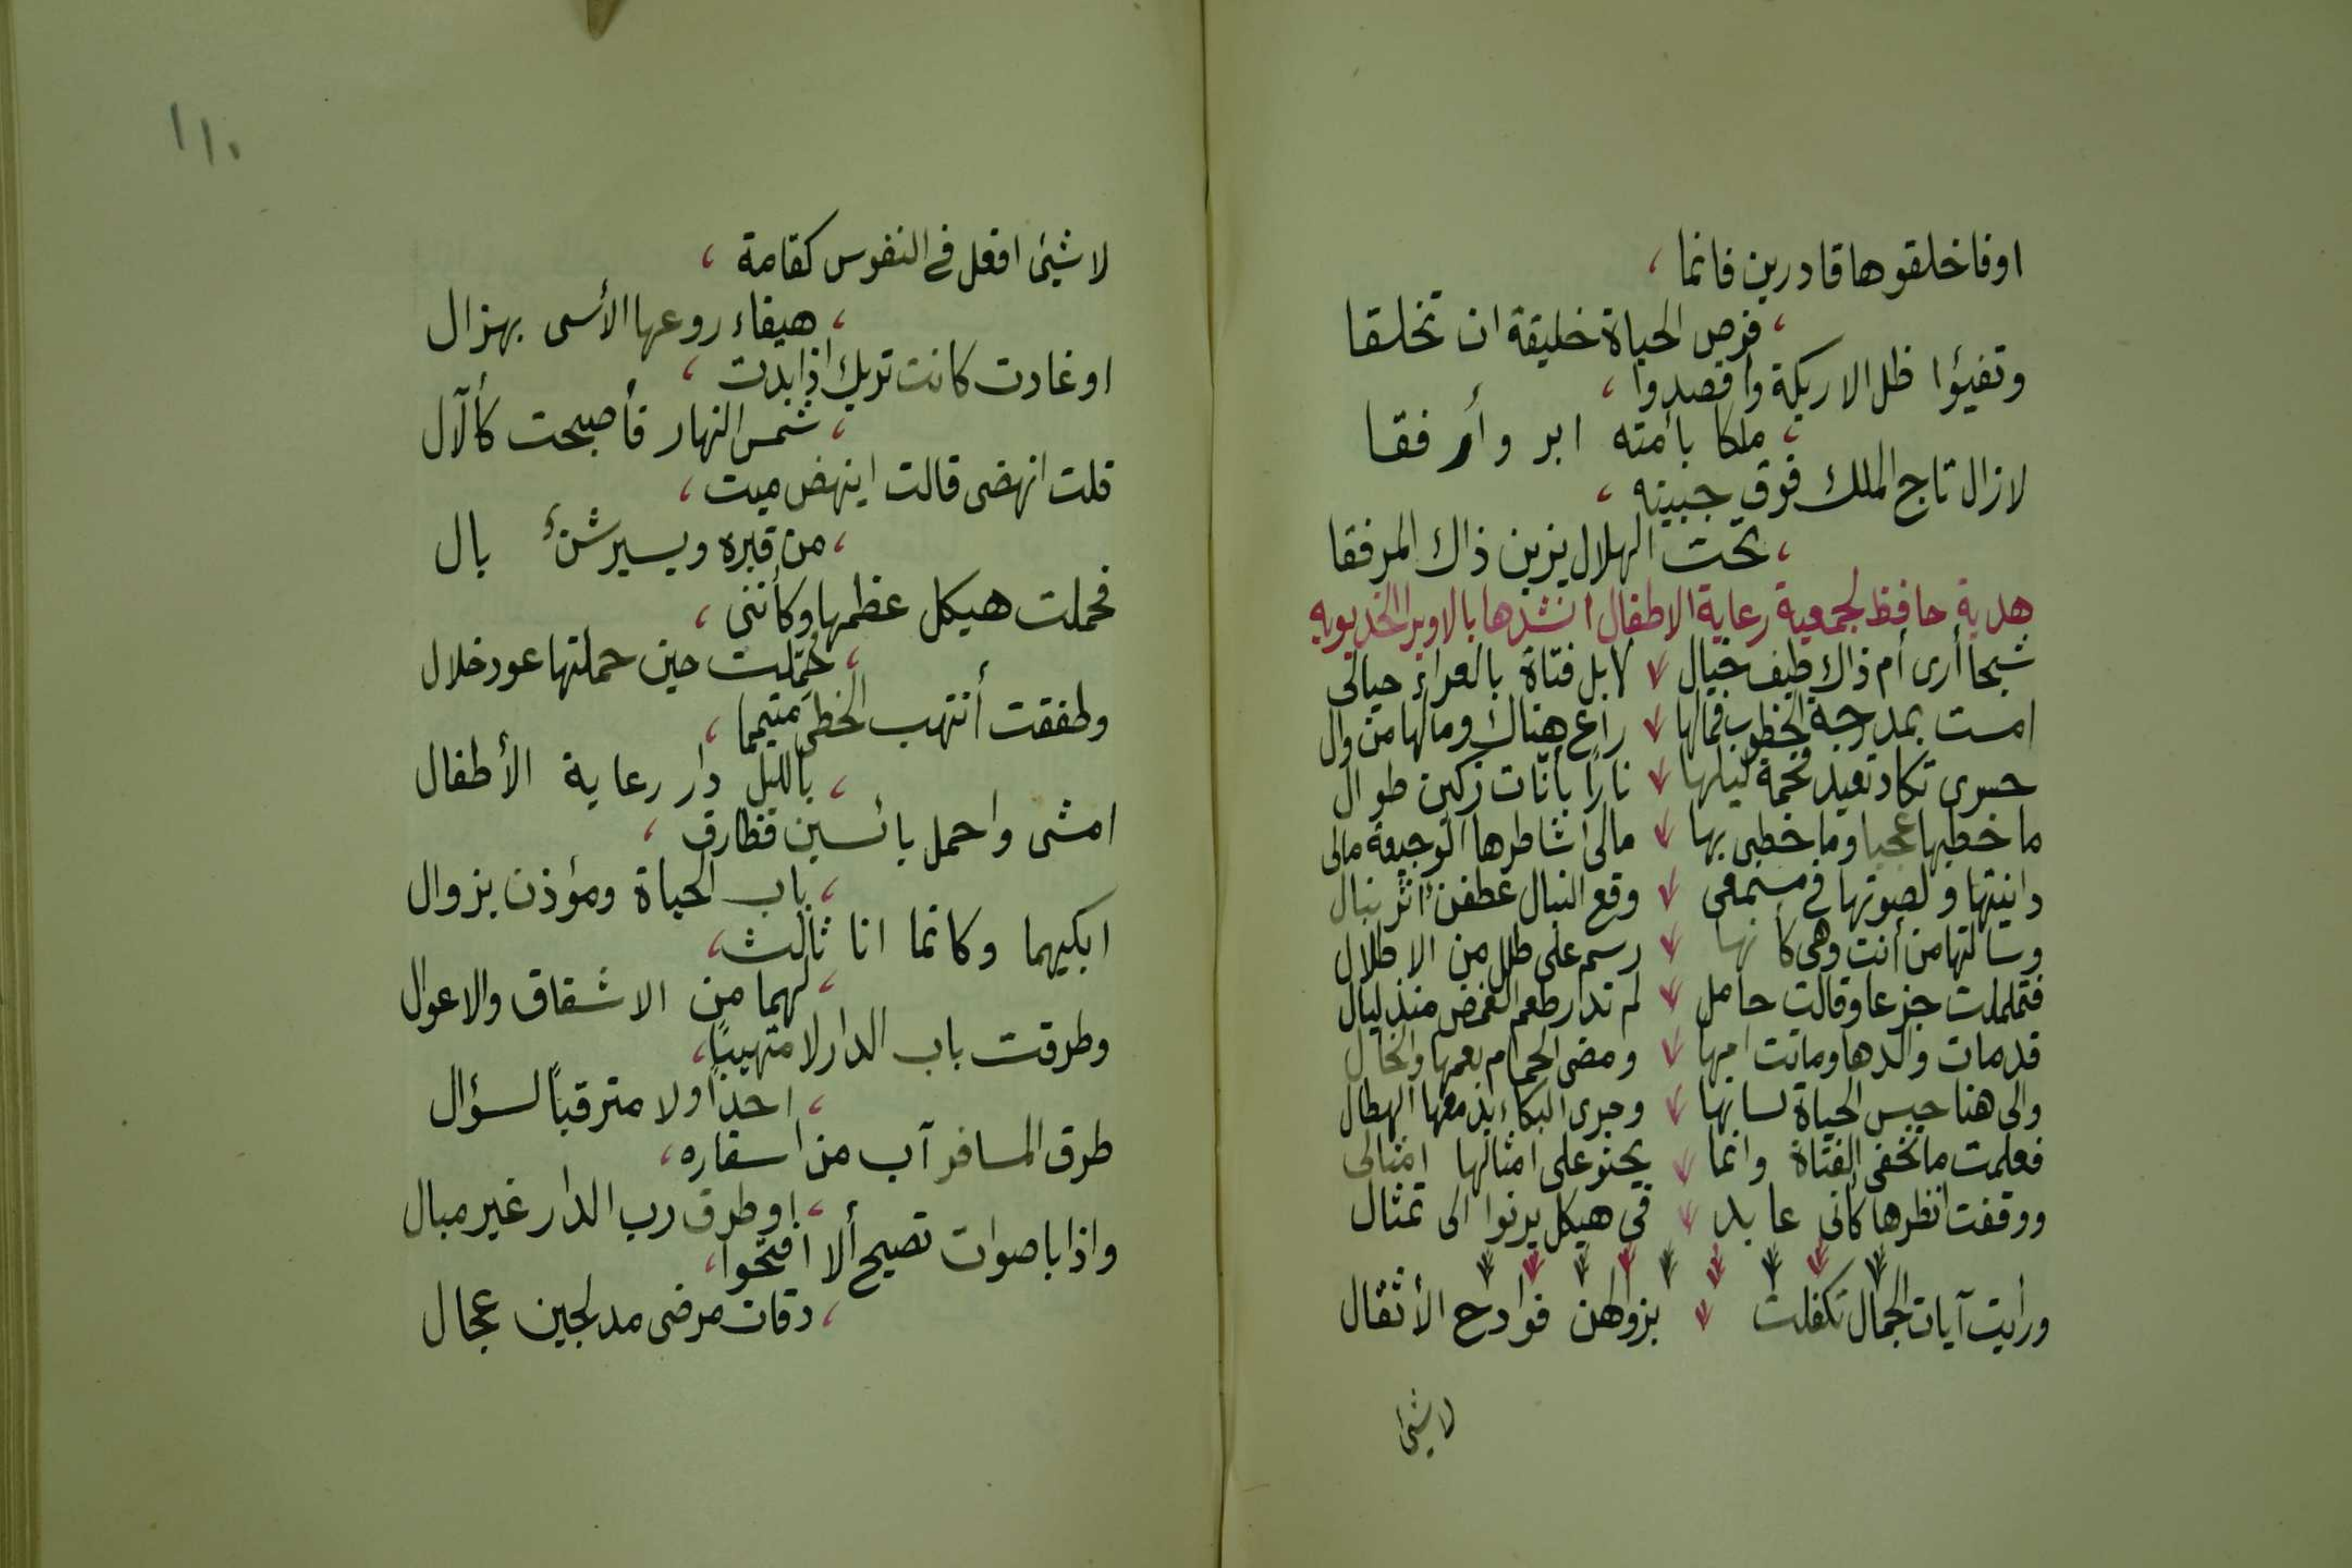 اوفاخلقوها قادرين فانما ،
، فرص الحياة خليقة ان تخلقا
وتفيؤا ظل الاريكة واقصدوا ،
، ملكا بأمته ابر وأرفقا
لازال تاج الملك فوق جبينه ،
، تحت الهلال يزين ذاك المرفقا
هدية حافظ لجمعية رعاية الاطفال انشدها بالاوبرا الخديويه
شبحا أرى أم ذاك طيف خيال لا بل فتاة بالعراء حيالى
امست بمدرجة الخطوب فمالها راع هناك ومالها من وال
حسرى تكاد تعيد فحمة ليلها نارًا بأنّات زكين طوال
ما خطبها عجبا وما خطبى بها مالى اشاطرها الوجيعة مالى
دانيتها ولصوتها فى مسمعى وقع النبال عطفن أثر نبال
وسالتها من أنت وهى كأنها رسم على طلل من الاطلال
فتململت جزعا وقالت حامل لم تدر طعم الغمض منذ ليال
قد مات والدها وماتت امها ومضى الحمام بعمها والخال
والى هنا حبس الحياة لسانها وجرى البكاء بدمعها الهطال
فعلمت ما تخفى الفتاة وانما يحنو على امثالها امثالى
ووقفت انظرها كأنى عابد فى هيكل يرنوا الى تمثال
ورأيت آيات الجمال تكفلت بزوالهن فوادح الأثقال
لاشيئ
١١٠
لاشيئ افعل فى النفوس كقامة ،
، هيفاء روعها الأسى بهزال
اوغادت كانت تريك اذا بدت ،
، شمس النهار فأصبحت كالآل
قلت انهضى قالت اينهض ميت ،
، من قبره ويسير شنٌّ بال
فحملت هيكل عظمها وكأننى ،
، حُمّلت حين حملتها عود خلال
وطفقت أنتهب الخطى متيمما ،
، بالليل دار رعاية الأطفال
امشى واحمل بائسين فطارق ،
، باب الحياة ومؤذن بزوال
ابكيهما وكانما انا ثالث ،
، لهما من الاشفاق والاعوال
وطرقت باب الدار لا متهيبًا ،
، احدًا ولا مترقبًا لسؤال
طرق المسافر آب من اسفاره ،
، اوطرق رب الدار غير مبال
واذا باصوات تصيح ألا افتحوا ،
، دقات مرضى مدلجين عجال